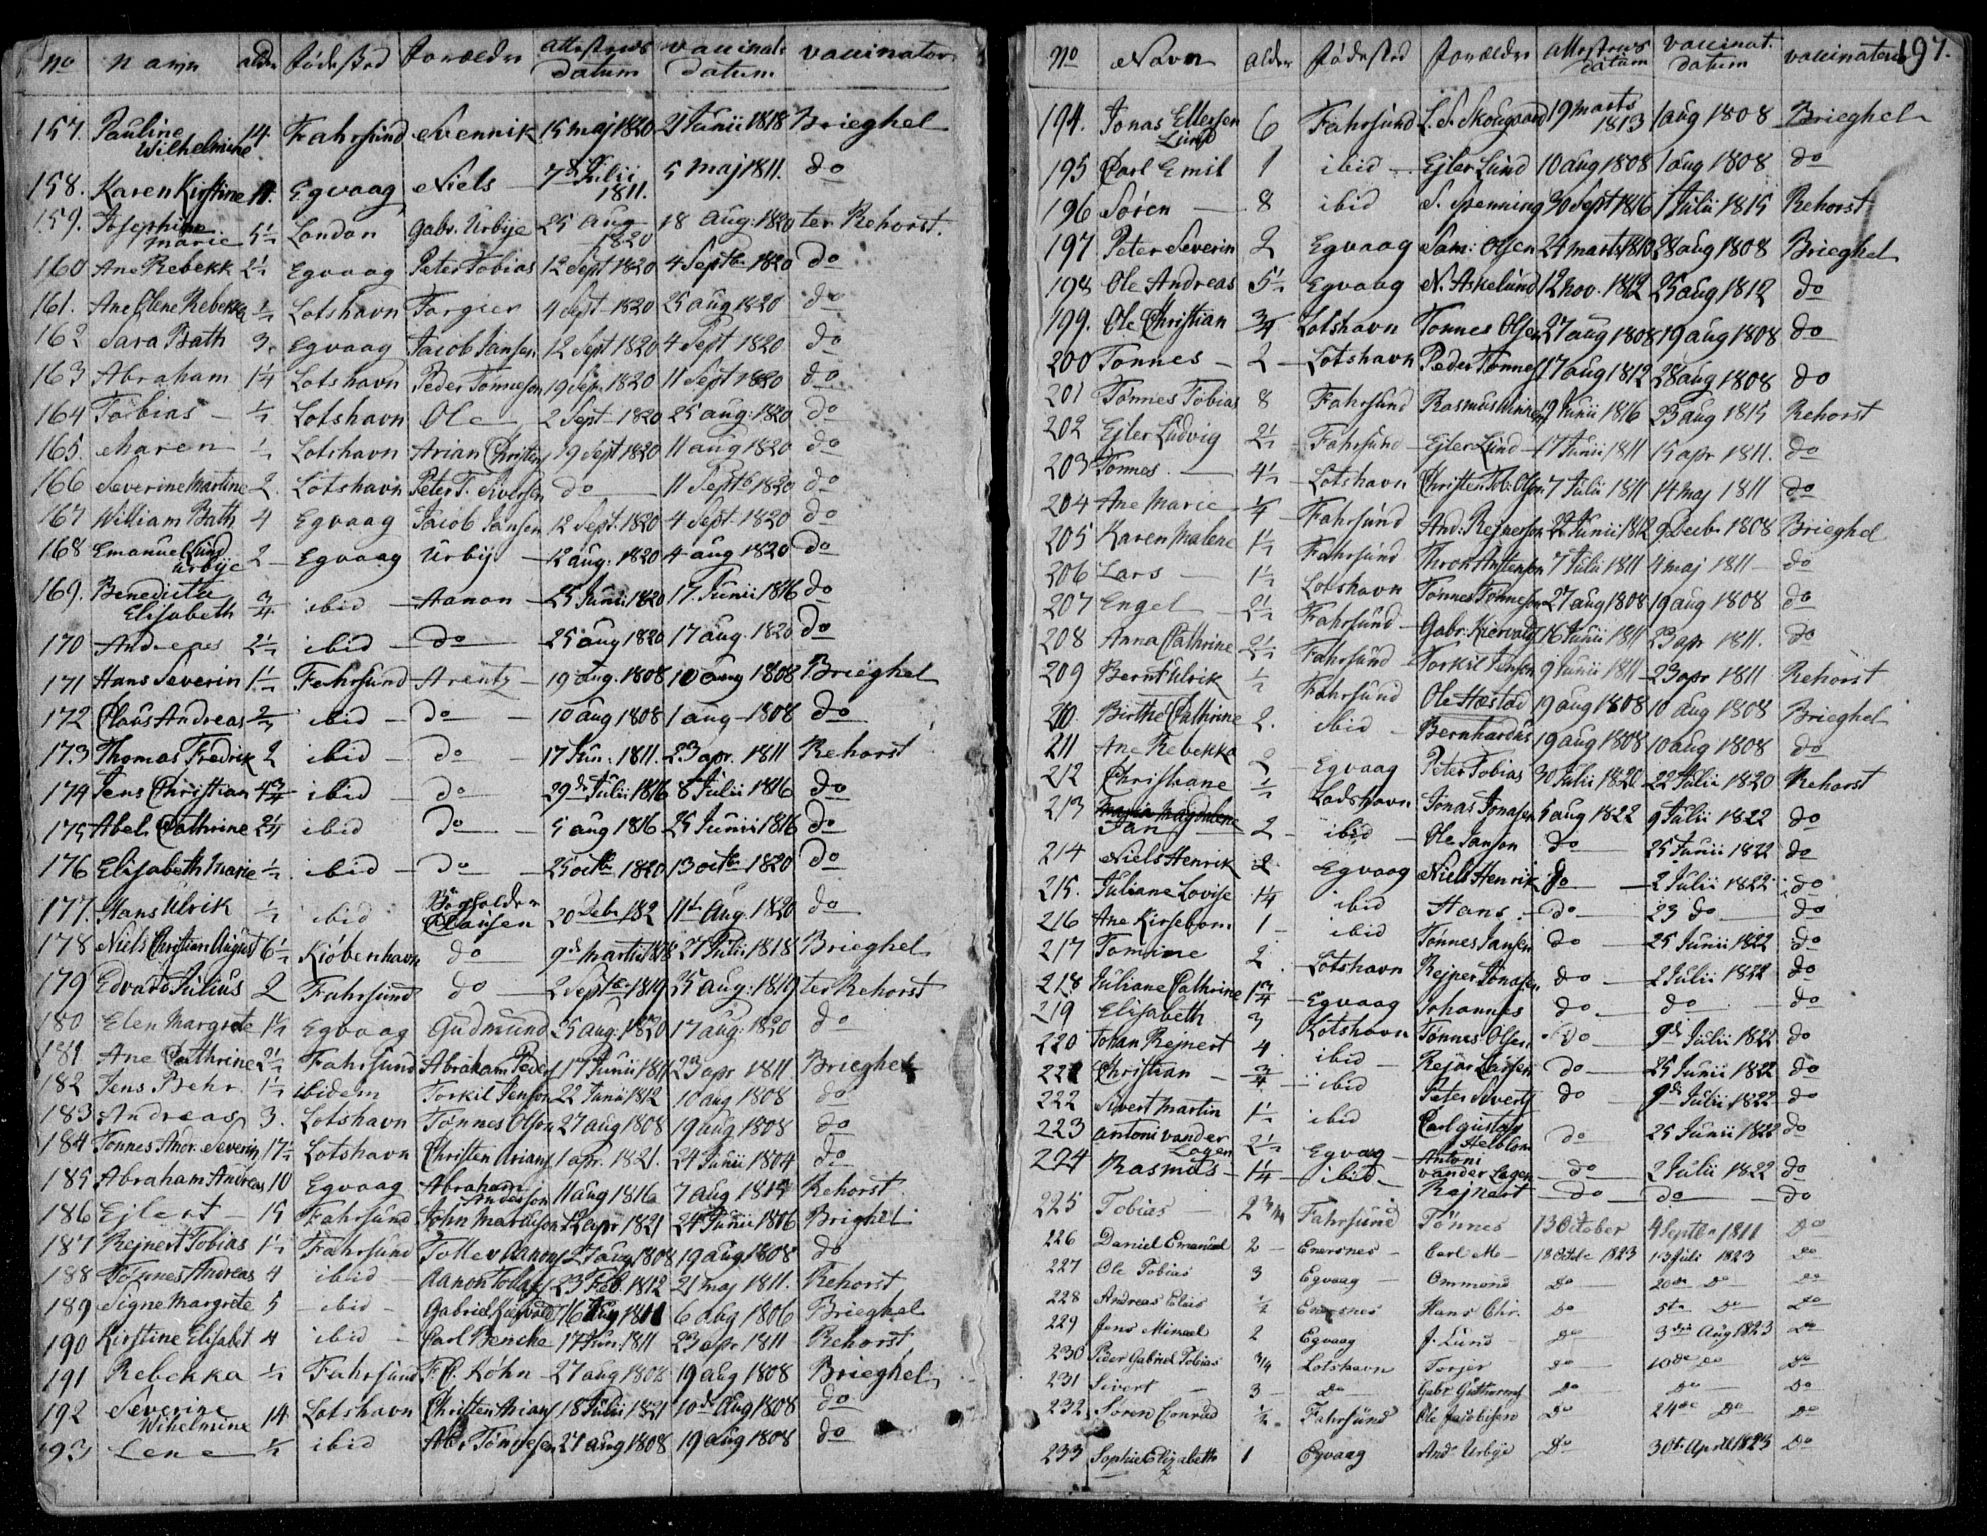 No Navn alder Fødested Forældre attestens datum vaccinat. datum vaccinator
157. Pauline Wilhelmine 14 Fahrsund Svennik 15 maj 1820 21 Junii 1818 Brieghel
158. Karen Kirstine 11. Egvaag Niels 7de Julii 1811. 5 maj 1811. do
159. Josephine marie 5½ London Gabr. Urbye 25 aug 1820 18 aug: 1820 ter Rehorst.
160 Ane Rebekk 2½ Egvaag Peter Tobias 12 Sept 1820 4 Septb 1820 do
161. Ane Elene Rebekka ½ Lotshavn Torgier 4 Sept 1820 25 aug 1820 do
162 Sara Bath 3. Egvaag Jacob Jansen 12 Sept 1820 4 Sept 1820 do
163 Abraham 1¼ Lotshavn Peder Tønnesen 19 Sep. 1820 11 Sept 1820 do
164 Tobias ½ Lotshavn Ole 2 Sept 1820 25 aug: 1820 do
165. Maren ½ Lotshavn Arian Christens 19 Sept 1820 11 aug 1820 do
166 Severine Martine 2. Lotshavn Peter T. Siversen do 11 Septb 1820 do
167 William Bath 4 Egvaag Jacob Jansen 12 Sept. 1820 4 Sept. 1820 do
168 Emanuel Lund Urbye 2 Egvaag Urbye 12 aug. 1820 4 aug 1820 do
169. Benedicte Elisabeth ¾ ibid Aanon 25 Junii 1820 17. Junii 1816 do
170 Andreas 2½ ibid do 25 aug 1820 17 aug. 1820 do
171 Hans Severin 1½ Fahrsund Arentz 19 aug. 1808 10 aug 1808 Brieghel
172 Claus Andreas ibid do 10 aug 1808 1 aug 1808 do
173 Thomas Fredrik 2 ibid do 17 Jun. 1811. 23 apr. 1811 Rehorst
174 Jens Christian 4¾ ibid do 29de Julii 1816 8 Julii 1816 do
175 Abel Cathrine 2¼ ibid do 5 aug 1816 25 Junii 1816 do
176 Elisabeth Marie ½ ibid do 25 octb 1820 13 octb 1820 do
177. Hans Ulrik ½ ibid Bogholder Clausen 20 Debr 182 11te Aug. 1820 do
178 Niels Christian August 6½ Kiøbenhavn do 9de Martii 1818 27 Julii 1818 Brieghel
179 Edvard Julius 2 Fahrsund do 2 Septb 1819 25 aug: 1819 ter Rehorst
180 Elen Margrete 1½ Egvaag Gudmund 25 aug: 1820 17 aug: 1820 do
181. Ane Cathrine 2½ Fahrsund Abraham Peders 17 Junii 1811 23 apr 1811 Brieghel
182 Jens Behr. 1½ ibidem Torkil Jenson 22 Junii 1812 10 aug 1808 do
183 Andreas 3. Lotshavn Tønnes Olsen 27 aug 1808 19 aug 1808 do
184 Tønnes Andr. Severin 17½ Lotshavn Christen Arians 1 apr. 1821. 24 Junii 1804 do
185 Abraham Andreas 10 Egvaag Abraham Anderson 11 aug 1816 7 aug 1815 Rehorst.
186 Ejlert 15 Fahrsund John Mortensen 12 apr 1821 24 Junii 1806 Brighel
187 Rejnert Tobias 1½ Fahrsund Tollev Aanons 27 aug 1808 19 aug 1808 do
188 Tønnes Andreas 4 ibid Aanon Tollafs. 23 Feb. 1812 21 maj 1811. Rehorst
189 Signe Margrete 5 ibid Gabriel Kiervald 16 Aug 1811 6 aug 1806 Brieghel
190 Kirstine Elisabet 4 ibid Carl Benche 17 Jun. 1811 23 apr 1811 Rehorst
191 Rebekka ½ Fahrsund F. C. Løhn 27 aug 1808 19 aug 1808 Brieghel
192 Severine Wilhelmine 14 Lotshavn Christen Arians 18 Julii 1821 10de Aug 1808 do
193 Lene ½ ibid Abr. Tønnesen 27 aug 1808 19 aug 1808 do
197.
No Navn alder Fødested Forældre attestens datum vaccinat. datum vaccinateur
194. Jonas Ellersen Lund 6 Fahrsund L. S. Skougaard 19 marts 1813 1 aug 1808 Brieghel
195 Carl Emil 1 ibid Ejler Lund 10 aug 1808 1 aug 1808 do
196 Søren 8 ibid S. Spenning 30 Sept 1816 1 Julii 1815 Rehorst
197 Peter Severin 2 Egvaag Sam: Olsen 24 marts 1810 28 aug 1808 Brieghel
198 Ole Andreas 5½ Egvaag N. Askelund 12 nov. 1812 25 aug 1812 do
199. Ole Christian ¾ Lotshavn Tønnes Olsen 27 aug 1808 19 aug 1808 do
200 Tønnes 2 Lotshavn Peder Tønnes 17 aug 1812 28 aug 1808 do
201 Tønnes Tobias 8 Fahrsund Rasmus 19 Junii 1816 23 aug 1815 Rehorst
202 Ejler Ludvig 2½ Fahrsund Ejler Lund 17 Junii 1811 15 apr 1811. do
203 Tønnes. 4½ Lotshavn Christen Tob. Olsen 7 Julii 1811 14 maj 1811 do
204 Ane Marie ¼ Fahrsund And: Rejnerson 22 Junii 1812 9 Decbr 1808 Brieghel
205 Karen Malene 1½ Fahrsund Thron Anstenson 7 Julii 1811 4 maj 1811 do
206 Lars 1½ Lotshavn Tønnes Tønneson 27 aug 1808 19 aug 1808 do
207 Engel 2½ Fahrsund Gabr: Kiervald 16 Junii 1811 23 apr 1811. do
208 Anna Cathrine 2½ Fahrsund Torkil Jenson 9 Junii 1811 23 apr 1811 Rehorst
209 Bernt Ulrik ½ Fahrsund Ole Hæstad 19 aug 1808 10 aug 1808 Brieghel
210. Birthe Cathrine 2. ibid Bernhardus 19 aug 1808 10 aug 1808 do
211 Ane Rebekka 2 Egvaag Peter Tobias 30 Julii 1820 22 Julii 1820 Rehorst
212 Christiane ½ Lodshavn Jonas Jonasen 5 aug 1822 9 Julii 1822 do
213 Maria Magdalene Jan 2 ibid Ole Janson do 25 Junii 1822 do
214 Niels Henrik 2 Egvaag Niels Henrik do 2 Julii 1822 do
215. Juliane Lovise 1¼ ibid Hans do 23 do do
216 Ane Kirsebom 1 ibid Tønnes Jansen do 25 Junii 1822 do
217 Tomine 2 Lotshavn Rejner Jonasen do 2 Julii 1822 do
218 Juliane Cathrine 1¾ Egvaag Johannes do do do
219 Elisabeth 3 Lotshavn Tønnes Olsen do 9de Julii 1822 do
220 Johan Rejnert 4 ibid Rejar Larsen do 25 Junii 1822 do
221 Christian ¾ ibid Peter Siverts do 9de Julii 1822 do
222 Sivert Martin 1½ ibid Carl Gustav Aelblom do 25 Junii 1822 do
223 Antoni vander Lagen 2½ Egvaag Antoni vander Lagen do 2 Julii 1822 do
224 Rasmus 1¼ ibid Rejnert do do do
225 Tobias 2¾ Fahrsund Tønnes 13 October 4 Septbr 1811 do
226 Daniel Emanuel 2 Enersnes Carl M 18 Octbr 1823 13 Juli 1823 do
227 Ole Tobias 3 Egvaag Ommond do 20de do do
228 Andreas Elias ½ Enersnes Hans Chr. do 5te do do
229 Jens Mikael 2 Egvaag J. Lund do 3die Aug 1823 do
230 Peder Gabriel Tobias ¾ Lotshavn Torjer do 10de do do
231 Sivert 3 do Gabr. Guthormsen do do do
232 Søren Conrad ½ Fahrsund Ole Jacobsen do 24de do do
233 Sophie Elizabeth 1 Egvaag And. Urbye do 30te April 1823 do